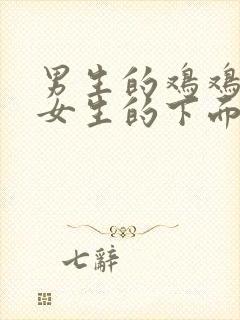 男生的鸡鸡
女生的下面
七辭